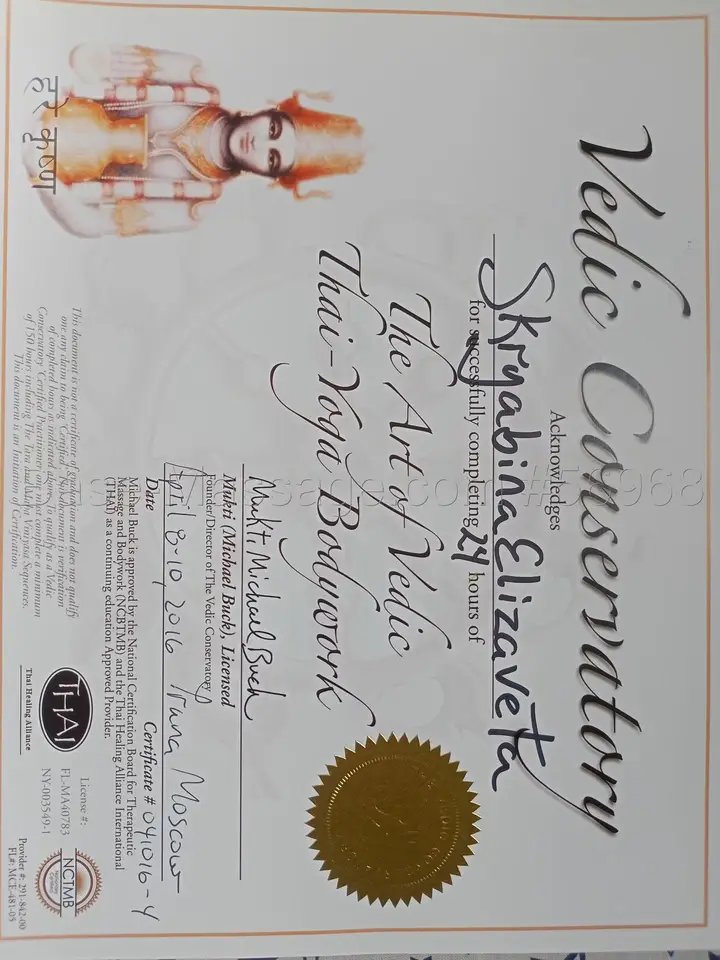 Vedic Conservatory
Acknowledges
Skryabina Elizaveta
for successfully completing 24 hours of
The Art of Vedic
Thai-Yoga Bodywork
हरे कृष्ण
Mukti Michael Buck
Mukti (Michael Buck), Licensed
Founder/Director of The Vedic Conservatory
April 8-10, 2016 Moscow
Date
Certificate # 041016-4
Michael Buck is approved by the National Certification Board for Therapeutic
Massage and Bodywork (NCBTMB) and the Thai Healing Alliance International
(THAI) as a continuing education Approved Provider.
This document is not a certificate of graduation and does not qualify
one any claim to being 'Certified'. This document is verification
of completed hours as indicated above. To qualify as a Vedic
Conservatory 'Certified Practitioner' one must complete a minimum
of 150 hours including The Tara and Maha Vinyasa Sequences.
This document is an Initiation of Certification.
THAI
Thai Healing Alliance
License #:
FL-MA40783
NY-003549-1
NCTMB
Provider #: 291-842-00
FL#: MCE-481-05